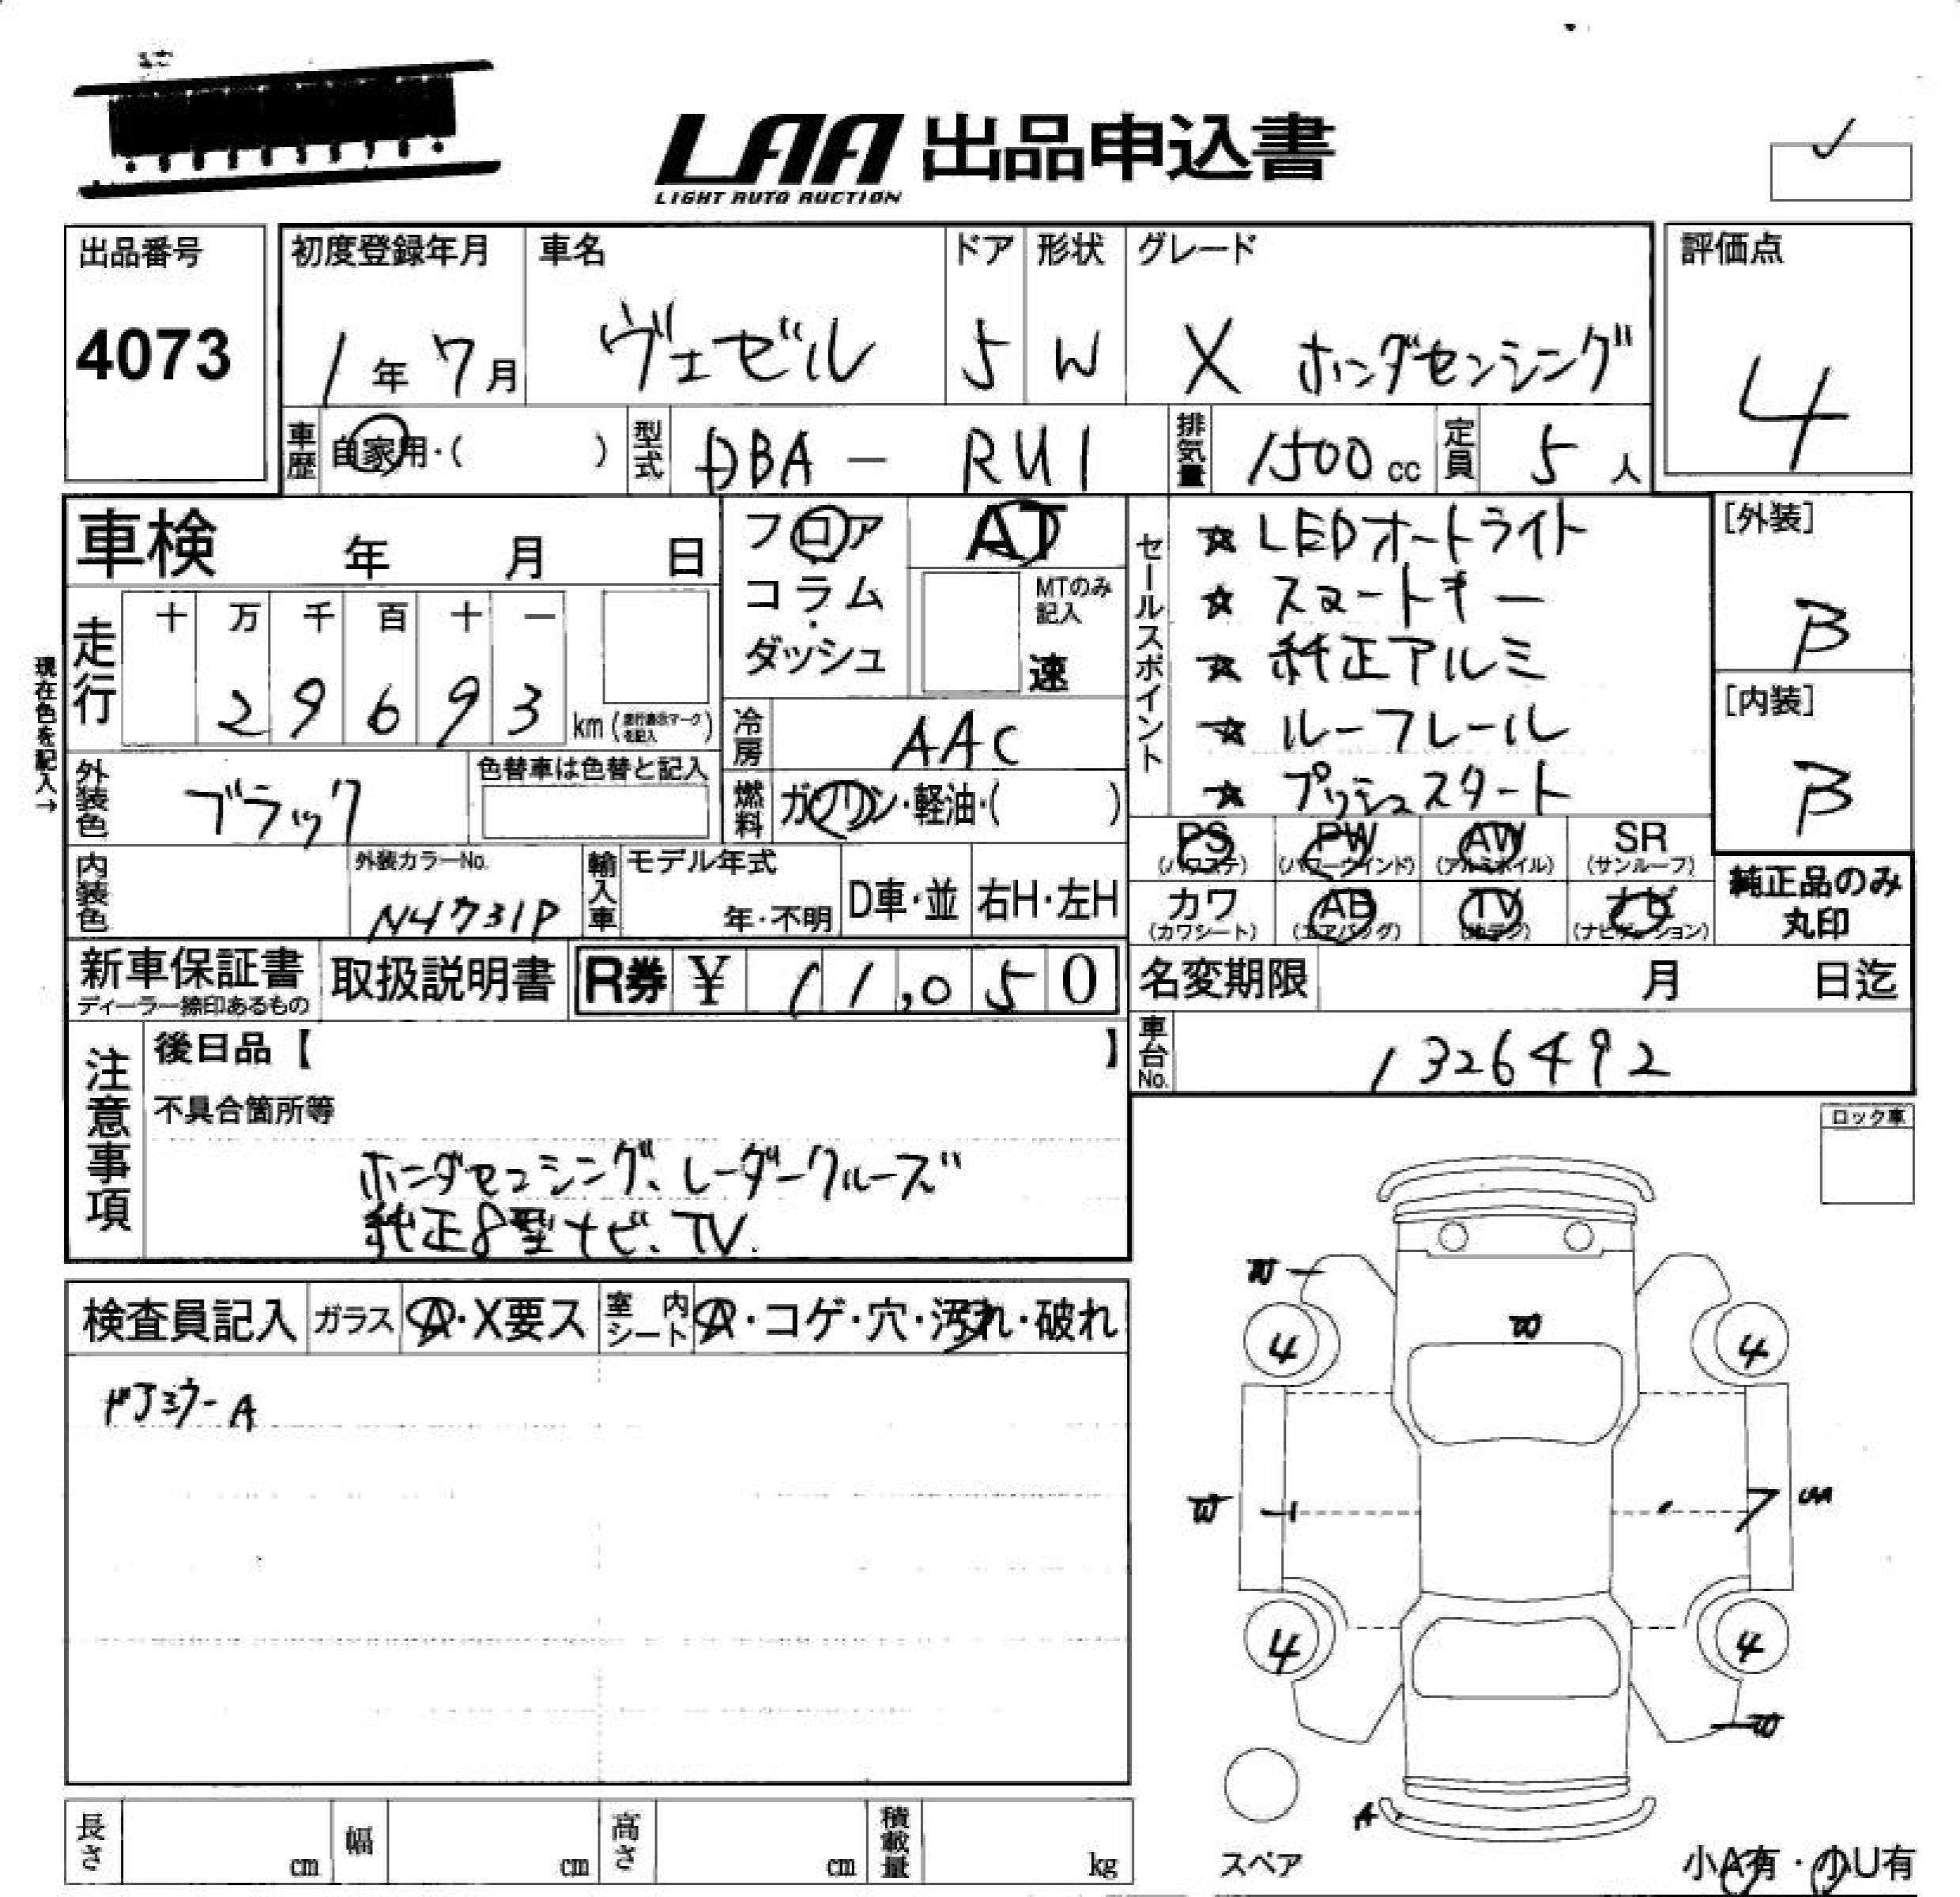 LAA 出品申込書
LIGHT AUTO AUCTION
出品番号
4073
初度登録年月
1年 7月
車名
ヴェゼル
ドア
5
形状
W
グレード
X ホンダセンシング
評価点
4
車歴
自家用・( )
型式
DBA - RU1
排気量
1500cc
定員
5人
車検 年 月 日
走行
十 万 千 百 十 一
2 9 6 9 3 km
現在色を記入→
フロア
コラム
・
ダッシュ
AT
MTのみ
記入
速
冷房
AAC
燃料
ガソリン・軽油・( )
セールスポイント
☆ LEDオートライト
☆ スマートキー
☆ 純正アルミ
☆ ルーフレール
☆ プッシュスタート
[外装]
B
[内装]
B
外装色
ブラック
色替車は色替と記入
内装色
外装カラーNo.
N4731P
輸入車
モデル年式
年・不明
D車・並
右H・左H
PS
(パワステ)
PW
(パワーウインド)
AW
(アルミホイル)
SR
(サンルーフ)
カワ
(カワシート)
AB
(エアバッグ)
TV
ナビ
(ナビゲーション)
純正品のみ
丸印
新車保証書
ディーラー捺印あるもの
取扱説明書
R券 ¥ 11,050
名変期限 月 日迄
車台No.
1326492
注意事項
後日品【 】
不具合箇所等
ホンダセンシング、レーダークルーズ
純正8型ナビ、TV.
ロック車
検査員記入
ガラス
A・X要ス
室内シート
A・コゲ・穴・汚れ・破れ
ドアミラーA
W
W
4
4
W
4
4
W
A
スペア
小A有・小U有
長さ cm
幅 cm
高さ cm
積載量 kg